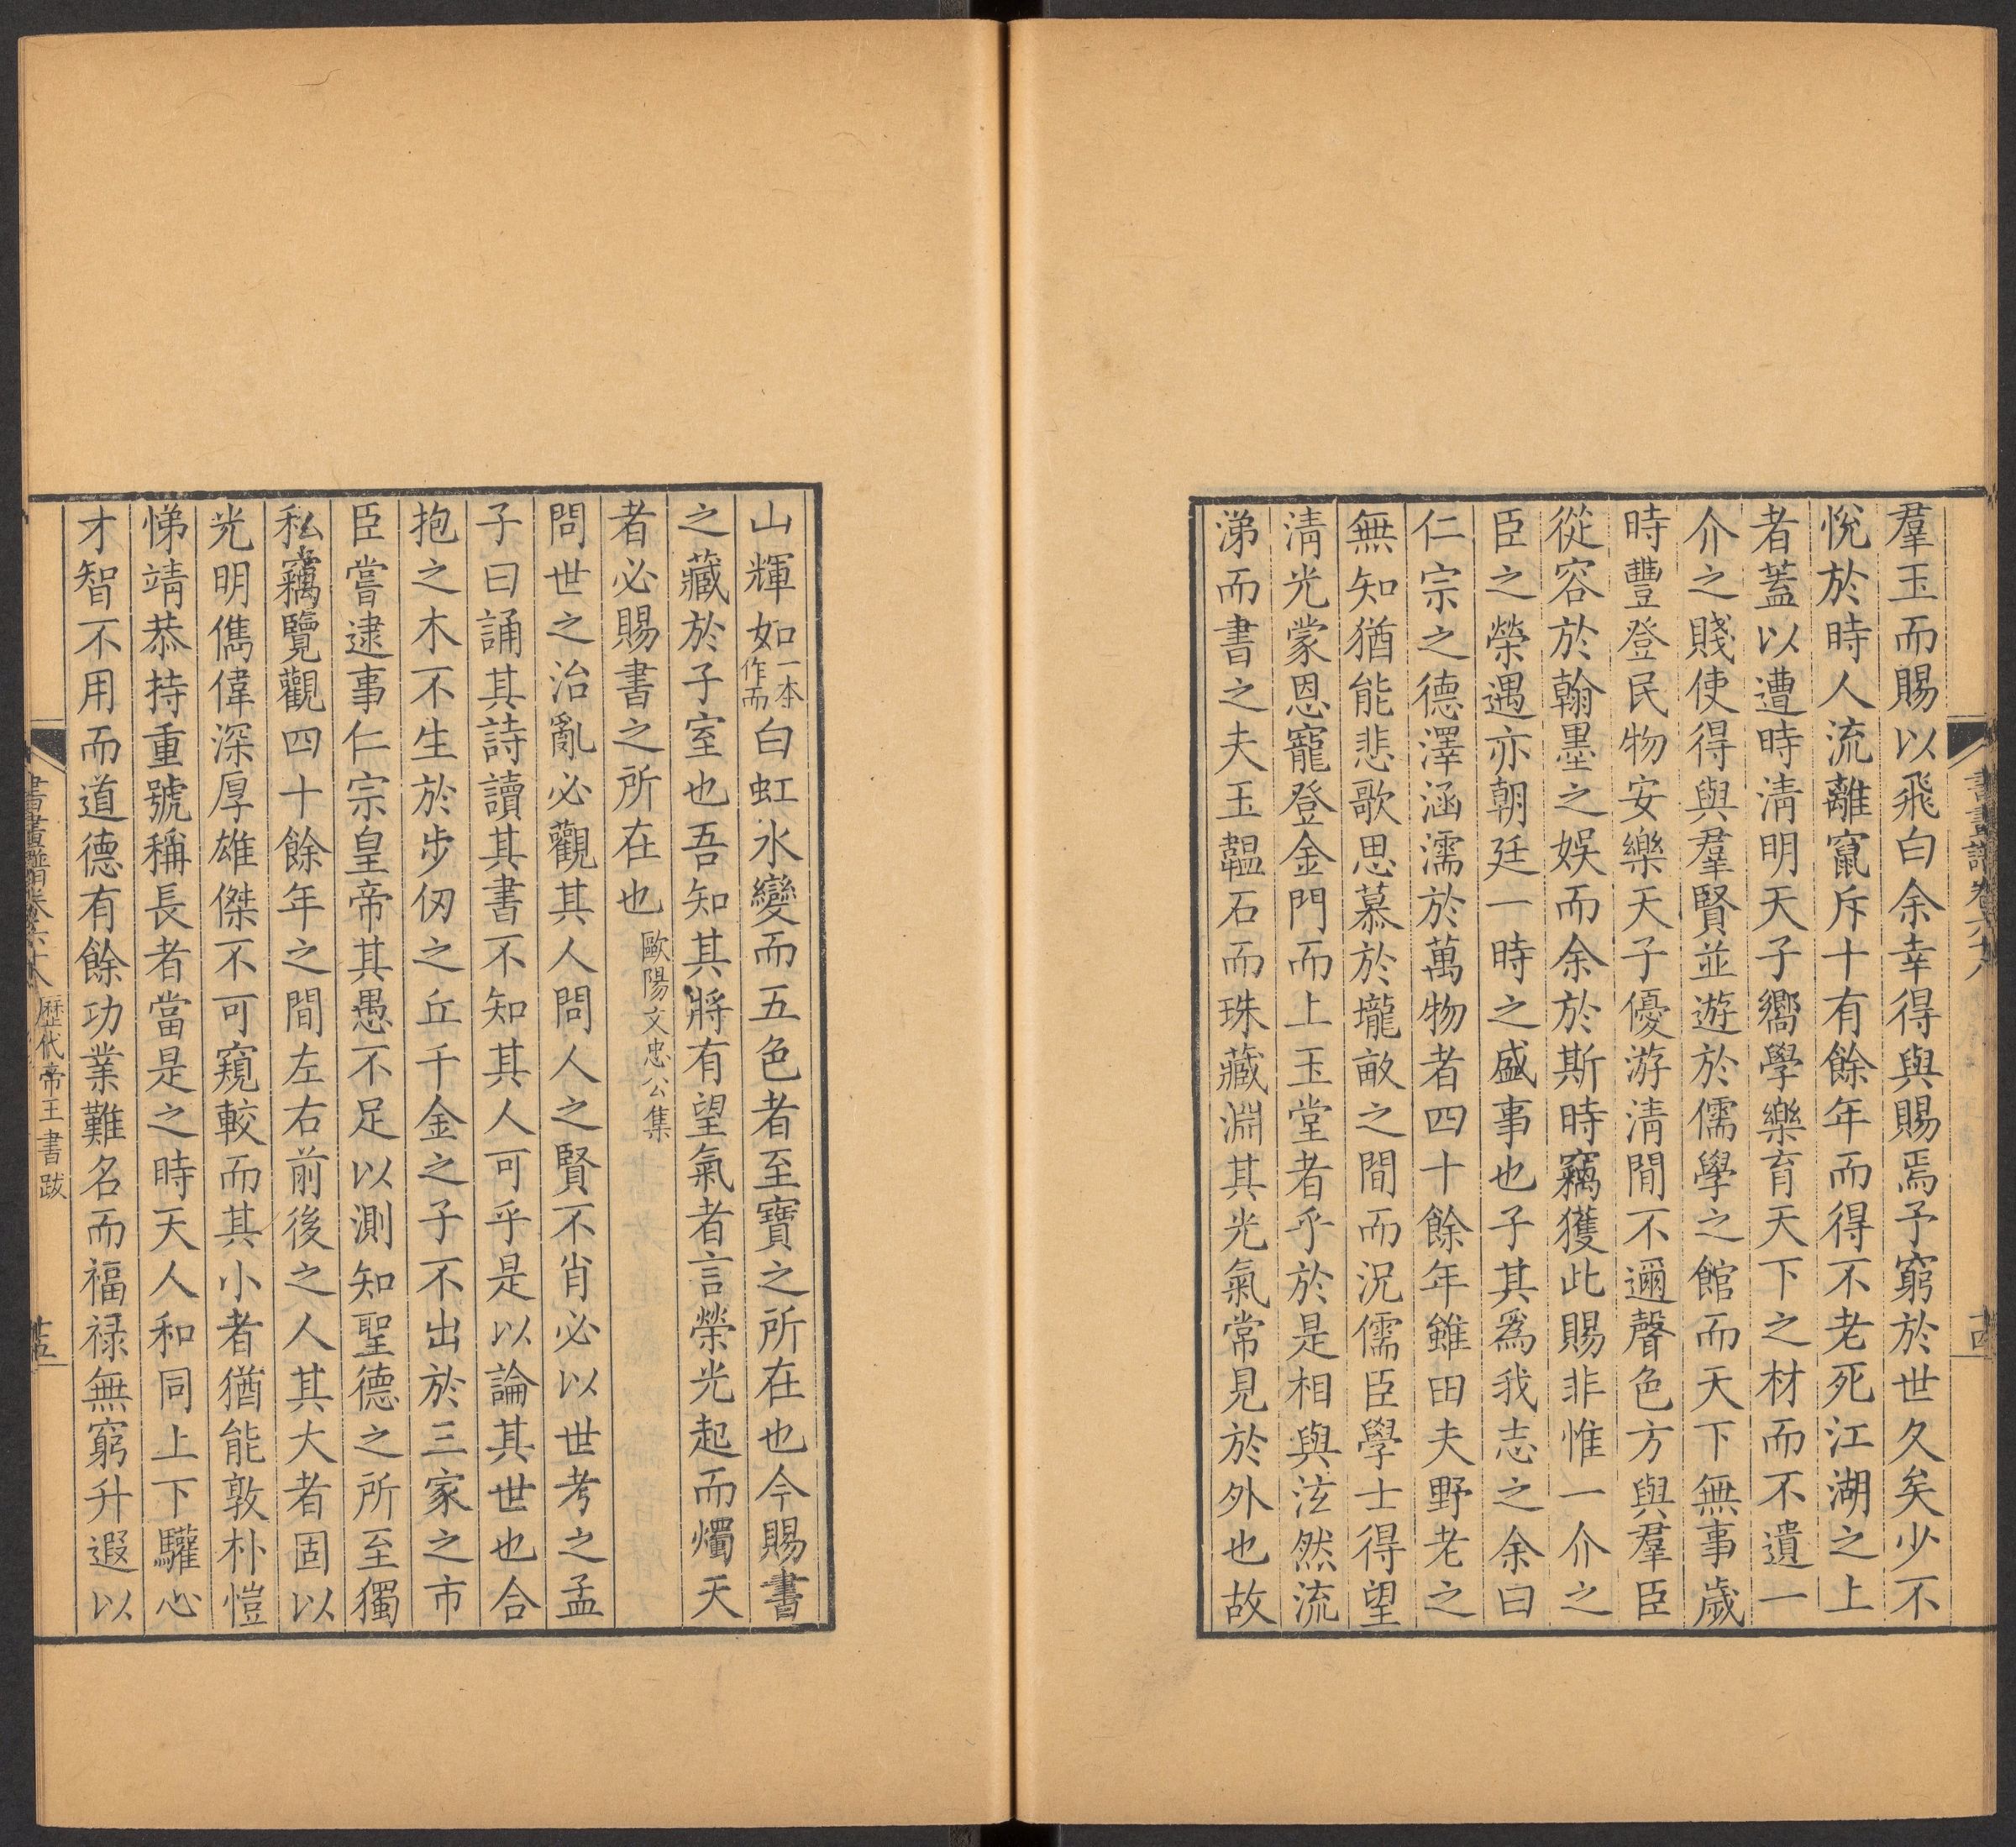 羣玉而賜以飛白余幸得與賜焉予窮於世久矣少不
悅於時人流離竄斥十有餘年而得不老死江湖之上
者蓋以遭時淸明天子嚮學樂育天下之材而不遺一
介之賤使得與羣賢並遊於儒學之館而天下無事歲
時豐登民物安樂天子優游淸閒不邇聲色方與羣臣
從容於翰墨之娛而余於斯時竊獲此賜非惟一介之
臣之榮遇亦朝廷一時之盛事也子其爲我志之余曰
仁宗之德澤涵濡於萬物者四十餘年雖田夫野老之
無知猶能悲歌思慕於壠畝之間而況儒臣學士得望
淸光蒙恩寵登金門而上玉堂者乎於是相與泫然流
涕而書之夫玉韞石而珠藏淵其光氣常見於外也故
山輝如一本作而白虹水變而五色者至寶之所在也今賜書
之藏於子室也吾知其將有望氣者言榮光起而燭天
者必賜書之所在也歐陽文忠公集
問世之治亂必觀其人問人之賢不肖必以世考之孟
子曰誦其詩讀其書不知其人可乎是以論其世也合
抱之木不生於步仞之丘千金之子不出於三家之市
臣嘗逮事仁宗皇帝其愚不足以測知聖德之所至獨
私竊覽觀四十餘年之間左右前後之人其大者固以
光明儁偉深厚雄傑不可窺較而其小者猶能敦朴愷
悌靖恭持重號稱長者當是之時天人和同上下驩心
才智不用而道德有餘功業難名而福祿無窮升遐以
書畫譜卷六十八 歷代帝王書跋 十五